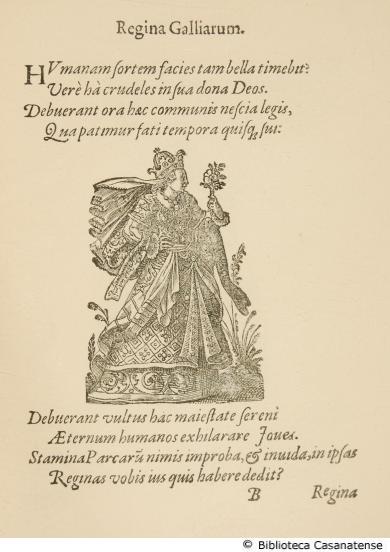 Regina Galliarum.
HVmanam sortem facies tam bella timebit?
Verè hà crudeles in sua dona Deos.
Debuerant ora hæc communis nescia legis,
Qua patimur fati tempora quisq; sui:
Debuerant vultus hac maiestate sereni
Æternum humanos exhilarare Ioues.
Stamina Parcarũ nimis improba, & inuida, in ipsas
Reginas vobis ius quis habere dedit?
B Regina
© Biblioteca Casanatense